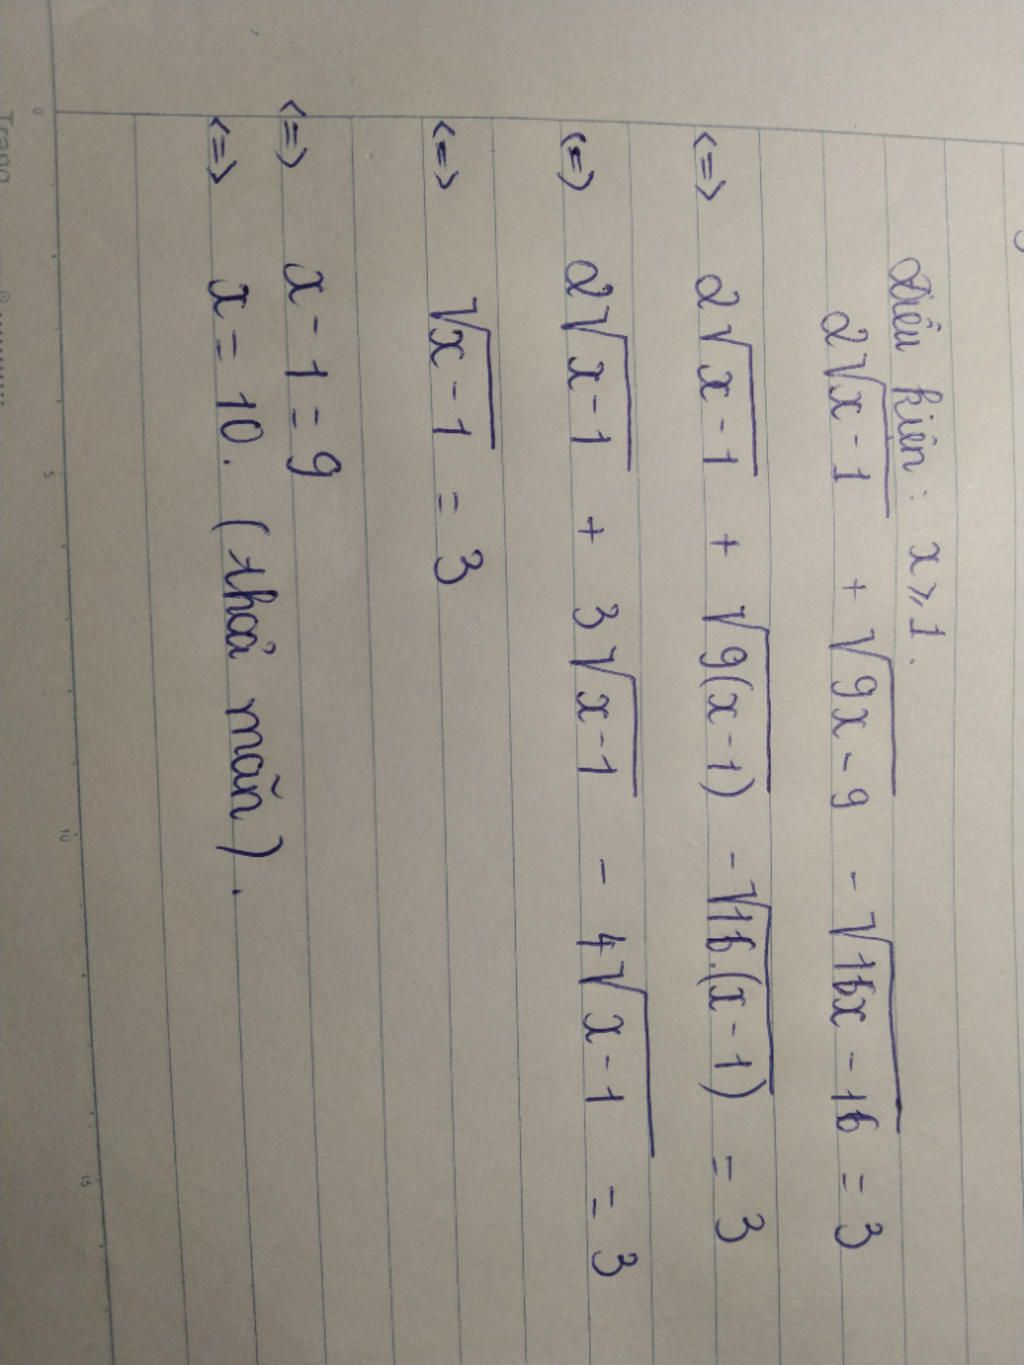 Điều kiện: x ≥ 1.
2√(x-1) + √(9x-9) - √(16x-16) = 3
<=> 2√(x-1) + √(9(x-1)) - √(16.(x-1)) = 3
<=> 2√(x-1) + 3√(x-1) - 4√(x-1) = 3
<=> √(x-1) = 3
<=> x - 1 = 9
<=> x = 10. (thoả mãn).
0 5 10 15